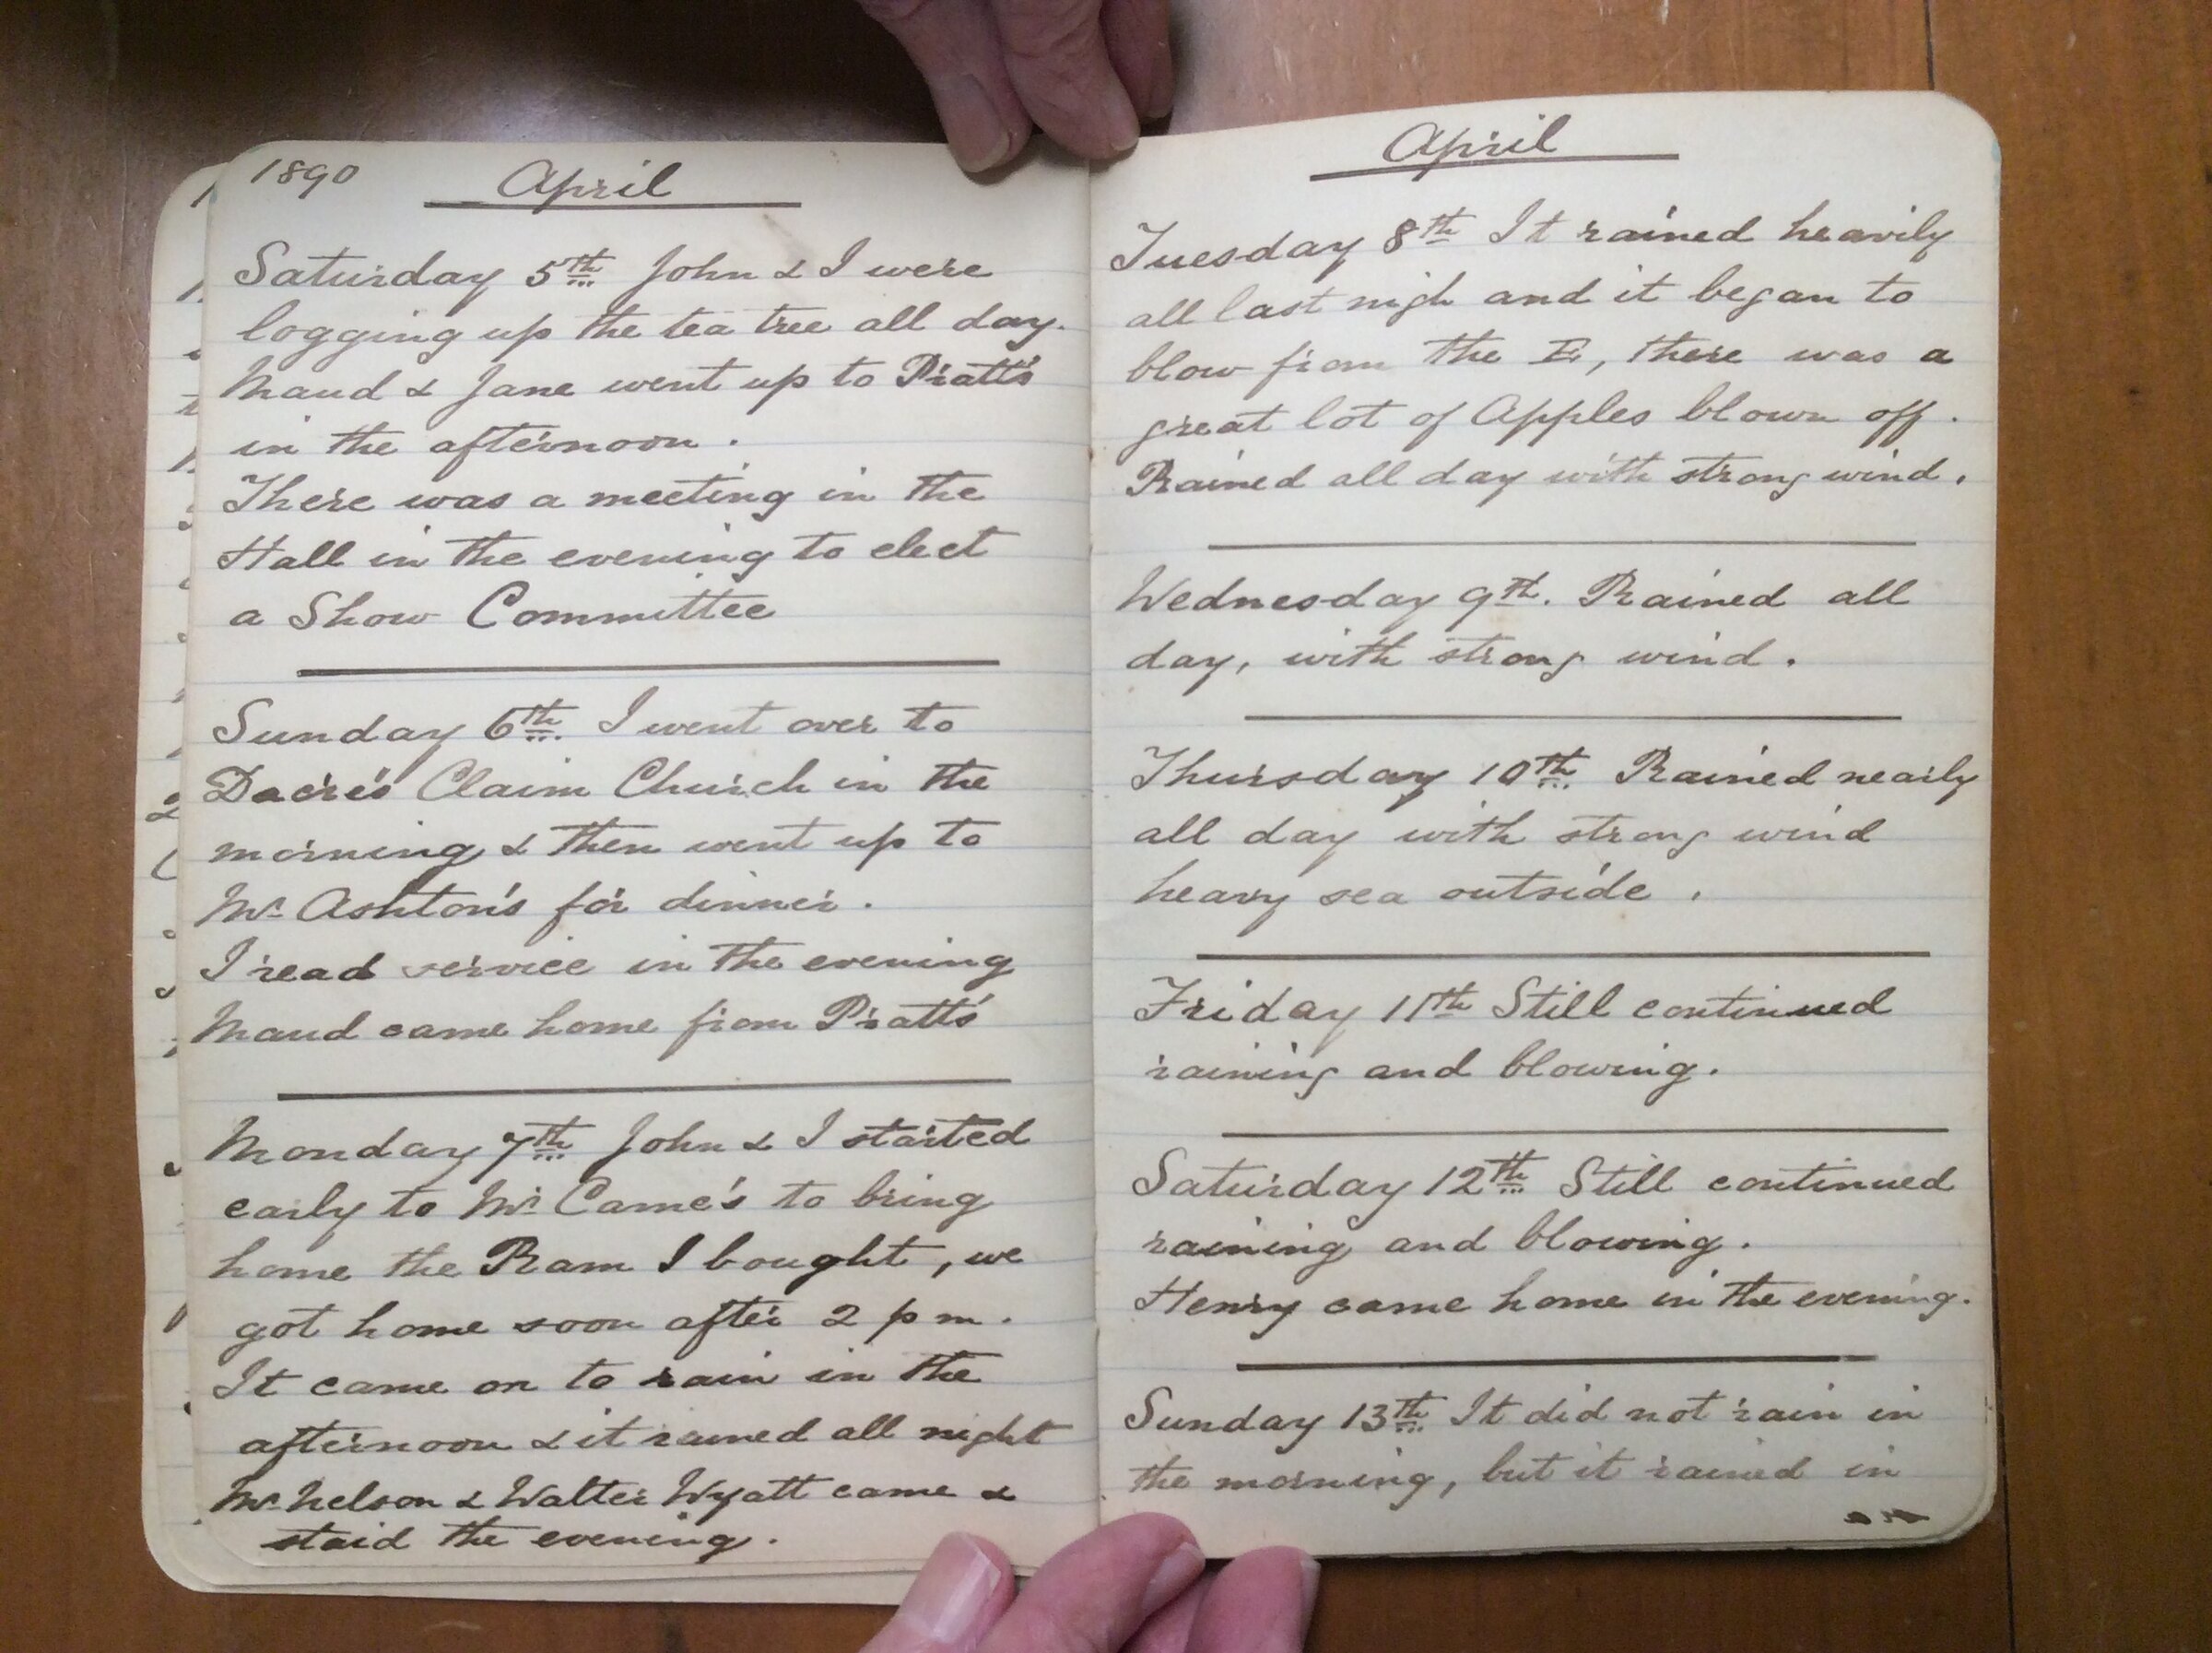 1890 April
Saturday 5th John & I were
logging up the tea tree all day.
Maud & Jane went up to Pratt's
in the afternoon.
There was a meeting in the
Hall in the evening to elect
a Show Committee
Sunday 6th. I went over to
Dacre's Claim Church in the
morning & then went up to
Mr Ashton's for dinner.
I read service in the evening
Maud came home from Pratt's
Monday 7th John & I started
early to Mr Came's to bring
home the Ram I bought, we
got home soon after 2 p m.
It came on to rain in the
afternoon & it rained all night
Mr Nelson & Walter Wyatt came &
staid the evening.
April
Tuesday 8th It rained heavily
all last nigh and it began to
blow from the E, there was a
great lot of Apples blown off.
Rained all day with strong wind.
Wednesday 9th. Rained all
day, with strong wind.
Thursday 10th Rained nearly
all day with strong wind
heavy sea outside.
Friday 11th Still continued
raining and blowing.
Saturday 12th Still continued
raining and blowing.
Henry came home in the evening.
Sunday 13th It did not rain in
the morning, but it rained in